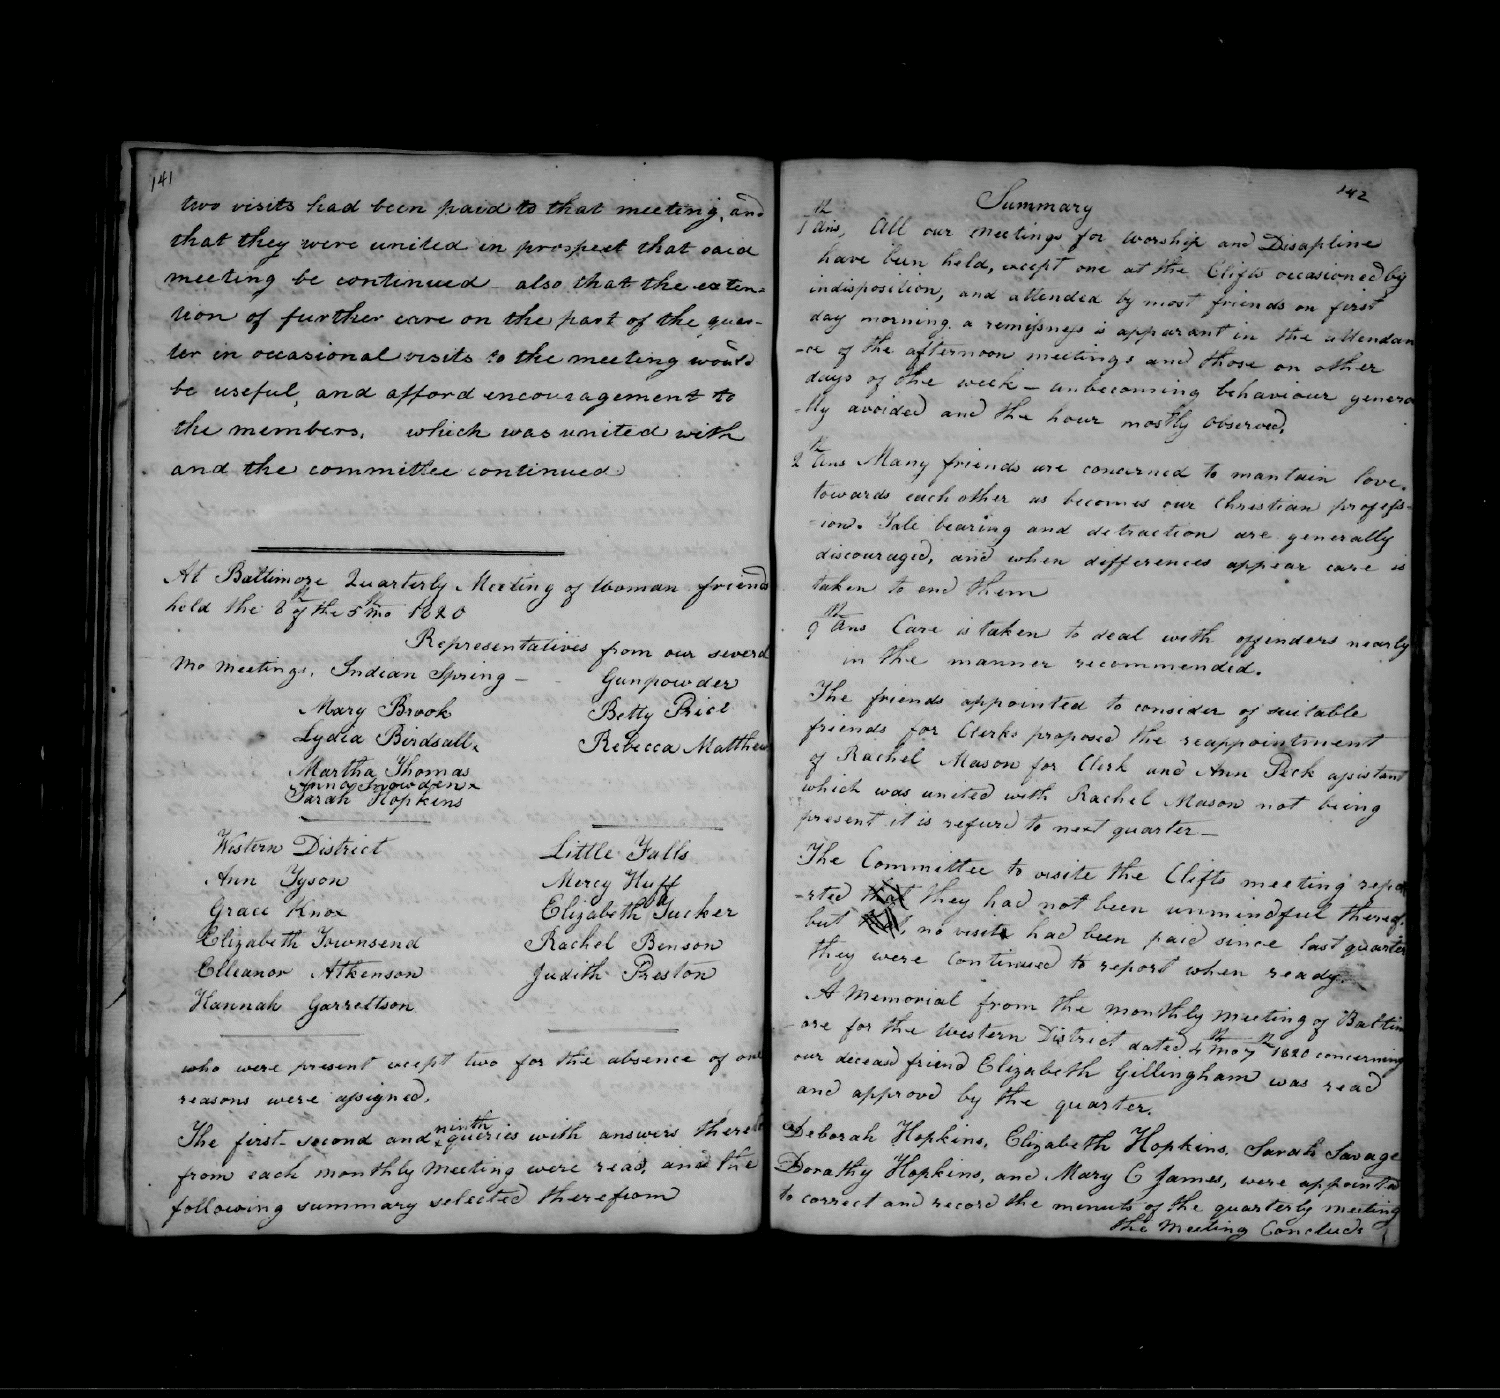 141
two visits had been paid to that meeting, and
that they were united in prospect that said
meeting be continued also that the exten-
tion of further care on the part of the quar-
ter in occasional visits to the meeting would
be useful, and afford encouragement to
the members, which was united with
and the committee continued
At Baltimore Quarterly Meeting of Woman friends
held the 8 of the 5th mo 1820
Representatives from our several
mo meetings, Indian Spring – Gunpowder
Mary Brook Betty Price
Lydia Birdsall x Rebecca Matthew
Martha Thomas
Anna Snowden x
Sarah Hopkins
Western District Little Falls
Ann Tyson Mercy Huff
Grace Knox Elizabeth Tucker
Elizabeth Townsend Rachel Benson
Elleanor Atkenson Judith Preston
Hannah Garrettson
who were present xcept two for the absence of one
reasons were assigned.
The first- second and ninth queries with answers thereto
from each monthly meeting were read, and the
following summary selected therefrom
142
Summary
1st Ans, All our meetings for worship and Disapline
have been held, xcept one at the Clifts occasioned by
indisposition, and attended by most friends on first
day morning. a remissness is apparant in the attendan
-ce of the afternoon meetings and those on other
days of the week – unbecoming behaviour genera
-lly avoided and the hour mostly observed.
2th Ans Many friends are concerned to mantain love
towards each other as becomes our Christian profess-
-ion. Tale bearing and detraction are generally
discouraged, and when differences appear care is
taken to end them
9th Ans Care is taken to deal with offenders nearly
in the manner recommended.
The friends appointed to consider of suitable
friends for Clerks proposed the reappointment
of Rachel Mason for Clerk and Ann Peck assistant
which was united with Rachel Mason not being
present it is refurd to next quarter –
The Committee to visite the Clifts meeting repo
-rted that they had not been unmindful thereof.
but no visits had been paid since last quarter
they were continued to report when ready.
A Memorial from the monthly meeting of Baltim
-ore for the western District dated 4th mo 7th 1820 concerning
our deceasd friend Elizabeth Gillingham was read
and approvd by the quarter.
Deborah Hopkins, Elizabeth Hopkins, Sarah Savage
Dorathy Hopkins, and Mary C James, were appointed
to correct and record the menuts of the quarterly meeting
the Meeting Conclude